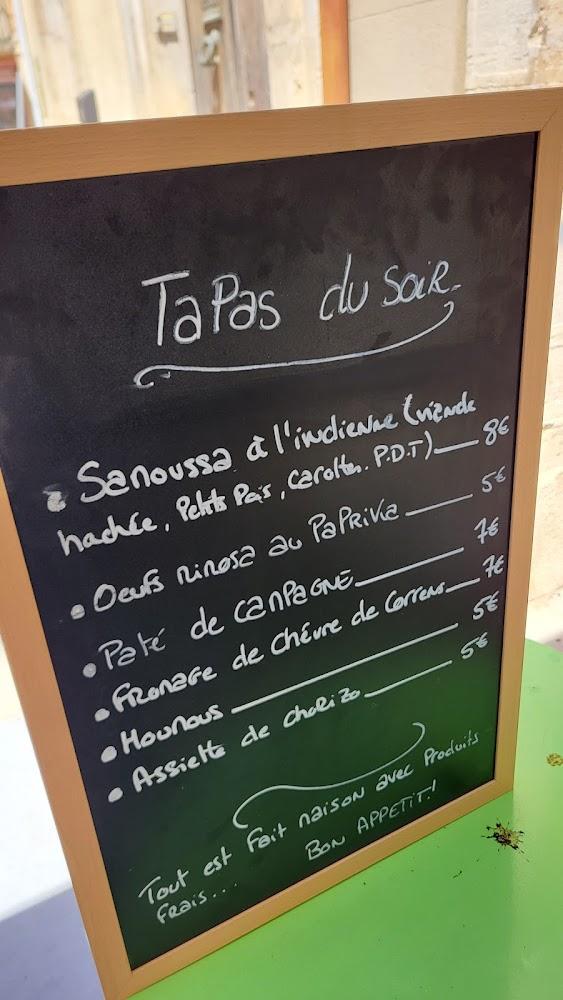 TaPas du Soir
Sanoussa à l'indienne (viande
hachée, Petits Pois, carottes. P.D.T) 8€
Oeufs Mimosa au PaPRiKa 5€
Paté de CAMPAGNE 7€
FROMAGE de Chèvre de Correns 7€
Houmous 5€
Assiette de choRizo 5€
Tout est Fait maison avec Produits
Frais....
BON APPETIT!